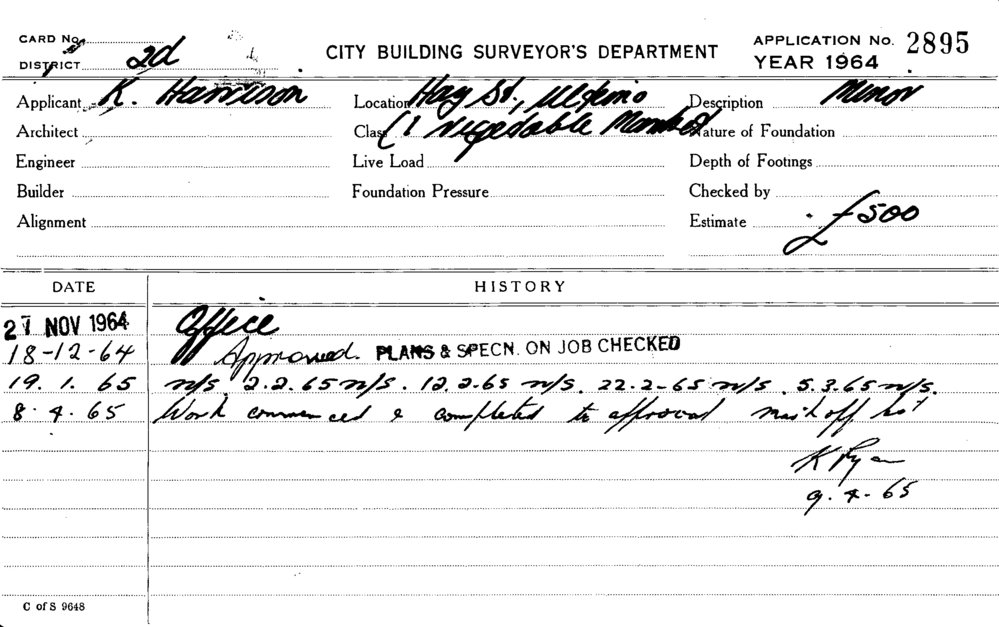 CARD No.
DISTRICT 2d
CITY BUILDING SURVEYOR'S DEPARTMENT
APPLICATION No. 2895
YEAR 1964
Applicant K. Harrison Location Hay St., Ultimo Description Minor
Architect Class (1 Vegetable Market) Nature of Foundation
Engineer Live Load Depth of Footings
Builder Foundation Pressure Checked by
Alignment Estimate £500
DATE HISTORY
27 NOV 1964 Office
18-12-64 Approved. PLANS & SPECN. ON JOB CHECKED
19. 1. 65 n/s 2.2.65 n/s. 12.2.65 n/s. 22.2-65 n/s. 5.3.65 n/s.
8. 4. 65 Work commenced & completed to approval
K Ryan
9. 4. 65
C of S 9648